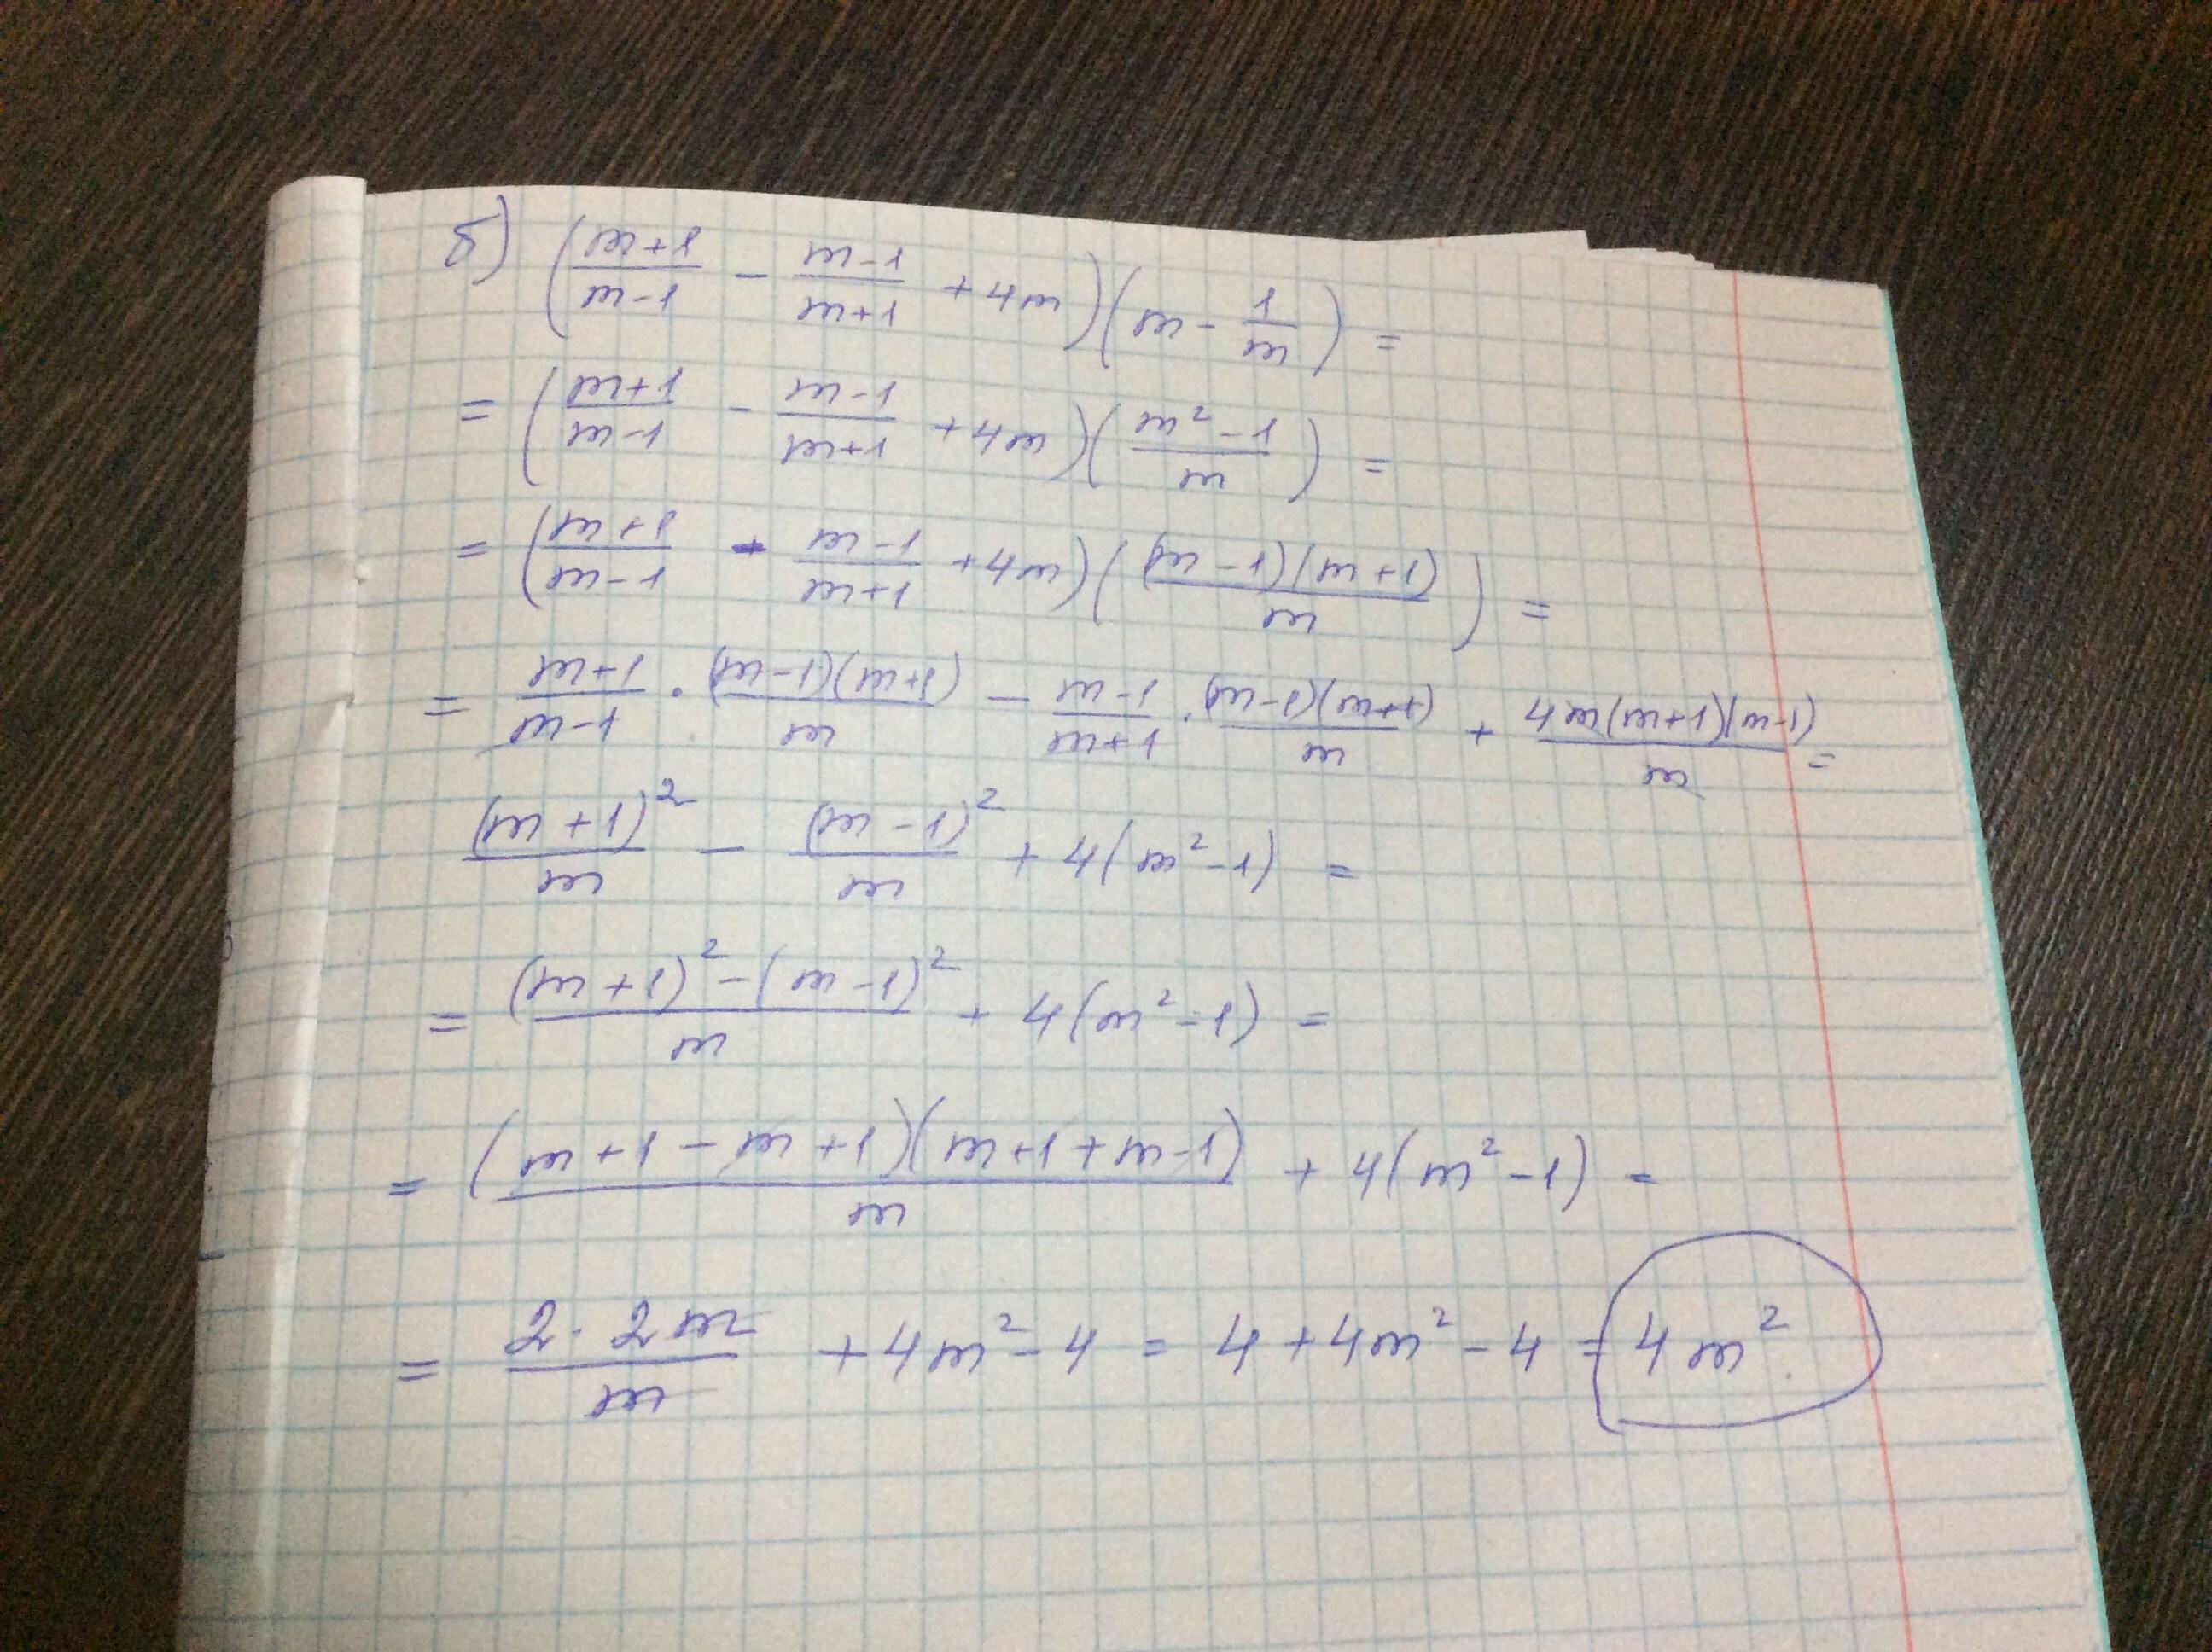 б) ((m+1)/(m-1) - (m-1)/(m+1) + 4m)(m - 1/m) =
= ((m+1)/(m-1) - (m-1)/(m+1) + 4m)((m²-1)/m) =
= ((m+1)/(m-1) - (m-1)/(m+1) + 4m)((m-1)(m+1)/m) =
= (m+1)/(m-1) · (m-1)(m+1)/m - (m-1)/(m+1) · (m-1)(m+1)/m + 4m(m+1)(m-1)/m =
(m+1)²/m - (m-1)²/m + 4(m²-1) =
= ((m+1)²-(m-1)²)/m + 4(m²-1) =
= (m+1-m+1)(m+1+m-1)/m + 4(m²-1) =
= 2·2m/m + 4m²-4 = 4+4m²-4 = 4m²